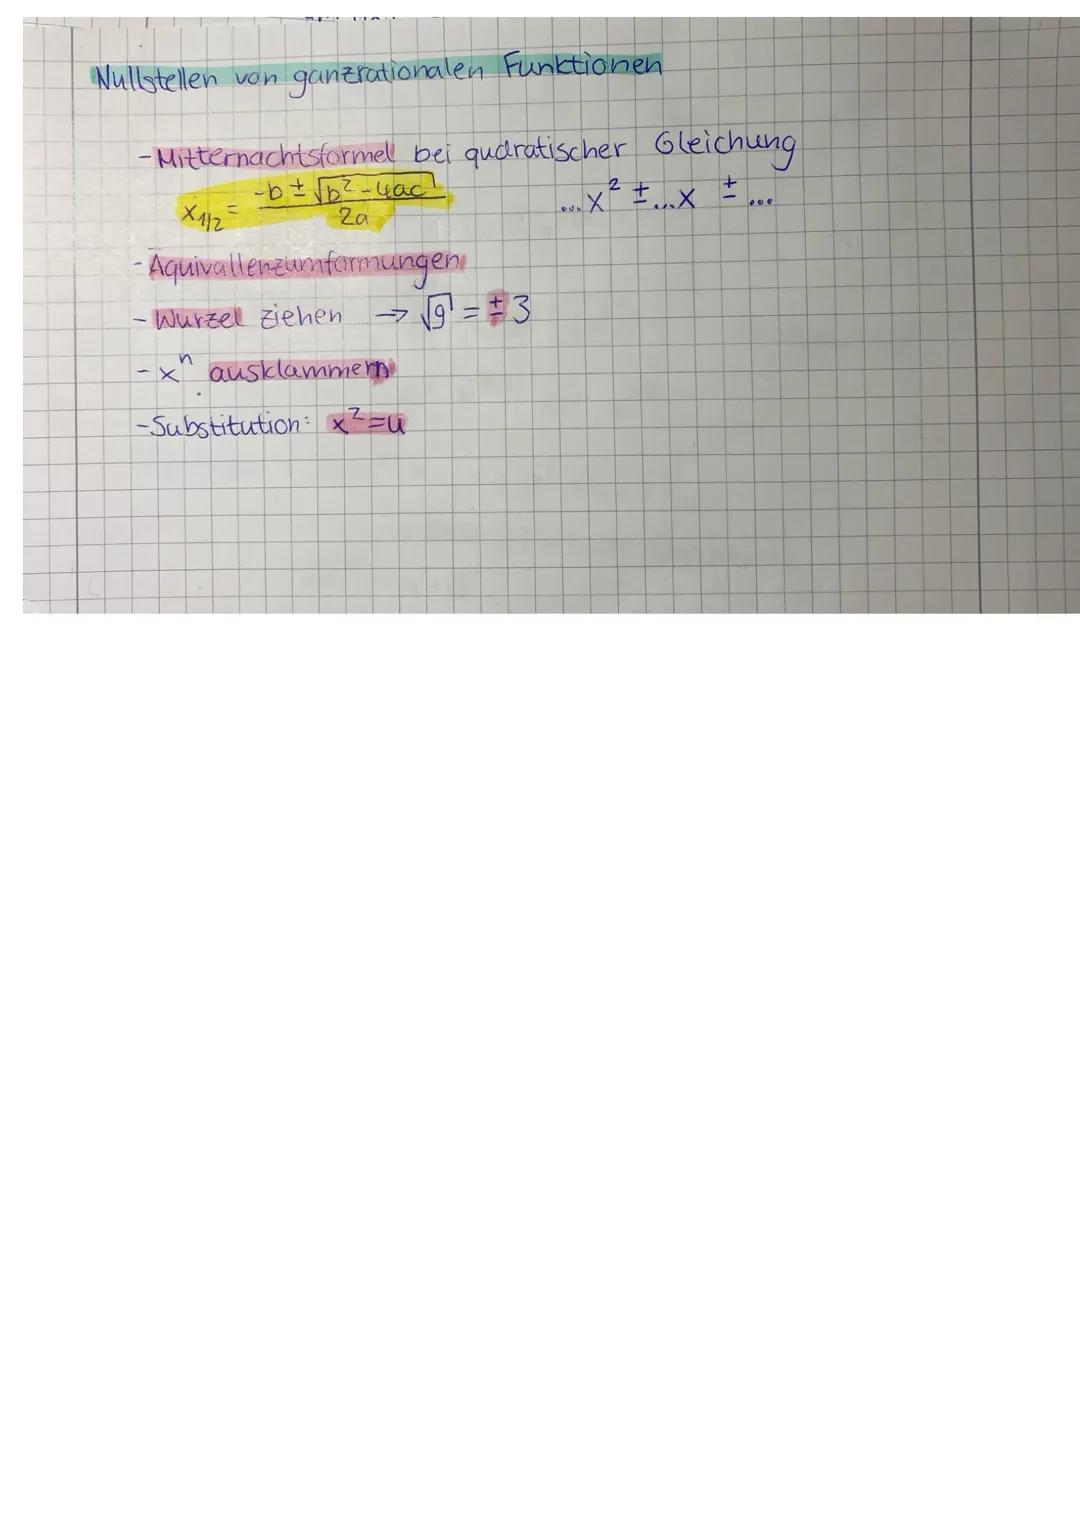 Nullstellen von ganzrationalen Funktionen
- Mitternachtsformel bei quadratischer Gleichung
x₁/₂ = (-b ± √(b² - 4ac)) / 2a    ...x² ± ...x ± ...
- Äquivallenzumformungen
- Wurzel ziehen → √9 = ± 3
- xⁿ ausklammern
- Substitution: x² = u